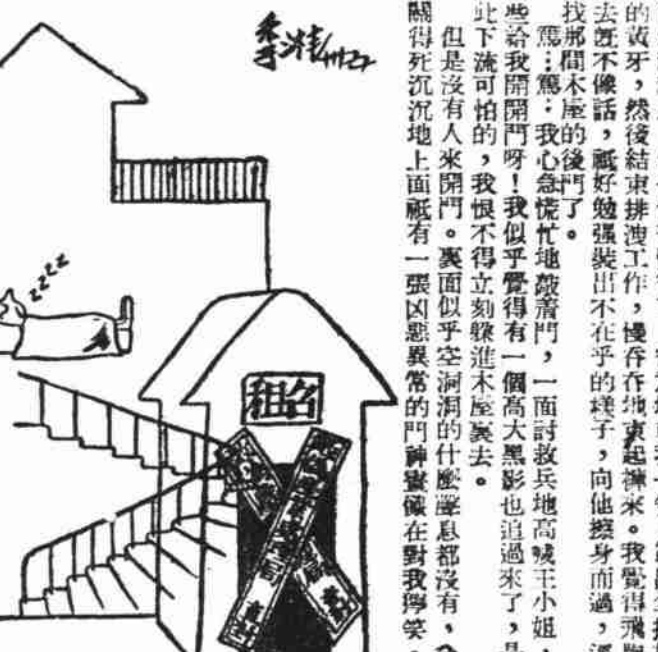 的黃牙，然後結束排洩工作，慢吞吞地束起褲來。我覺得飛跑
去旣不像話，祗好勉强裝出不在乎的樣子，向他擦身而過，
找那間木屋的後門了。
篤；篤；我心急慌忙地敲着門，一面討救兵地高喊王小姐，
些給我開開門呀！我似乎覺得有一個高大黑影也追過來了，是
此下流可怕的，我恨不得立刻躱進木屋裏去。
但是沒有人來開門。裏面似乎空洞洞的什麼聲息都沒有，
關得死沉沉地上面祗有一張凶惡異常的門神畫像在對我獰笑。
招租
zzzz